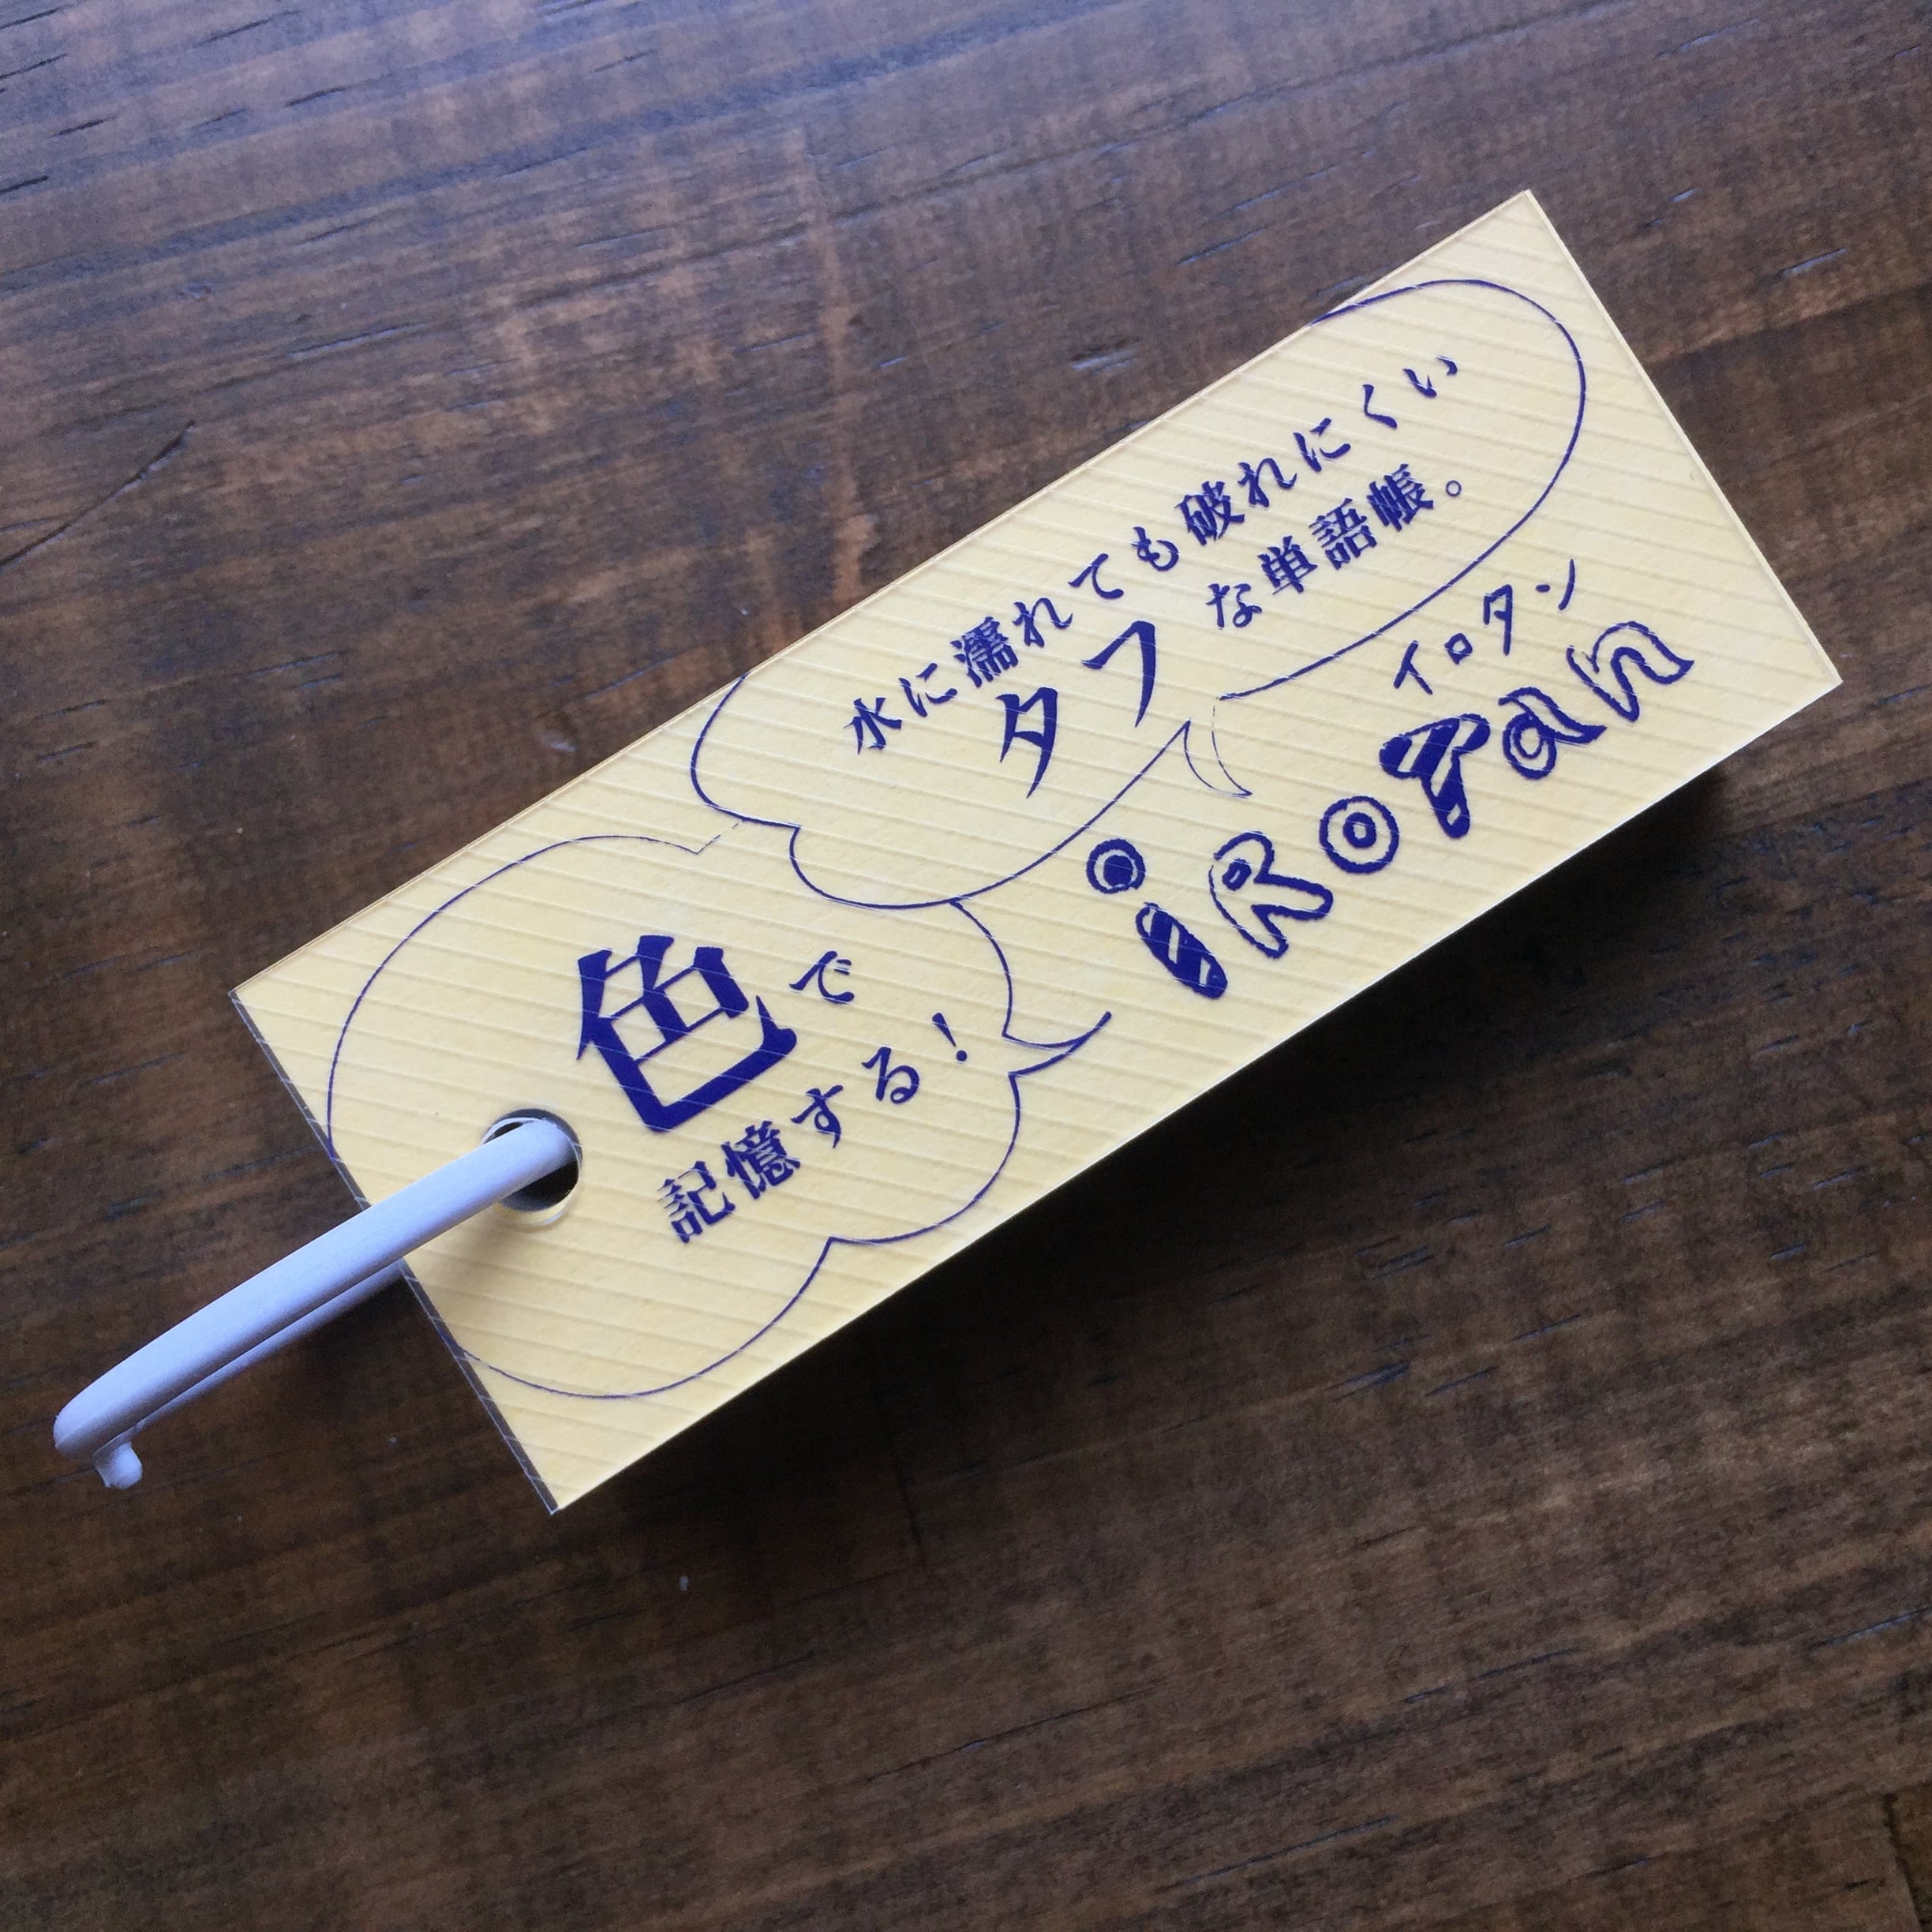 色で
記憶する!
水に濡れても破れにくい
タフな単語帳。
イロタン
iROTan